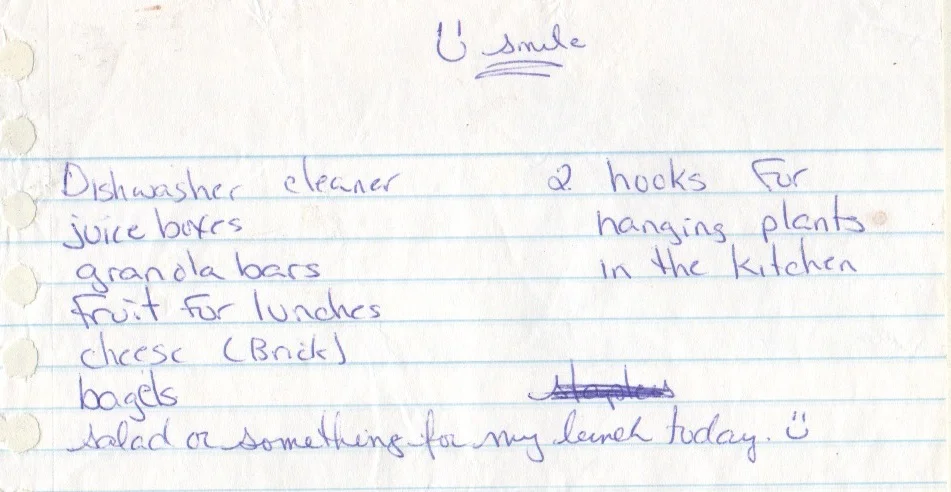 smile
Dishwasher cleaner
juice boxes
granola bars
fruit for lunches
cheese (Brick)
bagels
salad or something for my lunch today. :)
2 hooks for
hanging plants
in the kitchen
staples